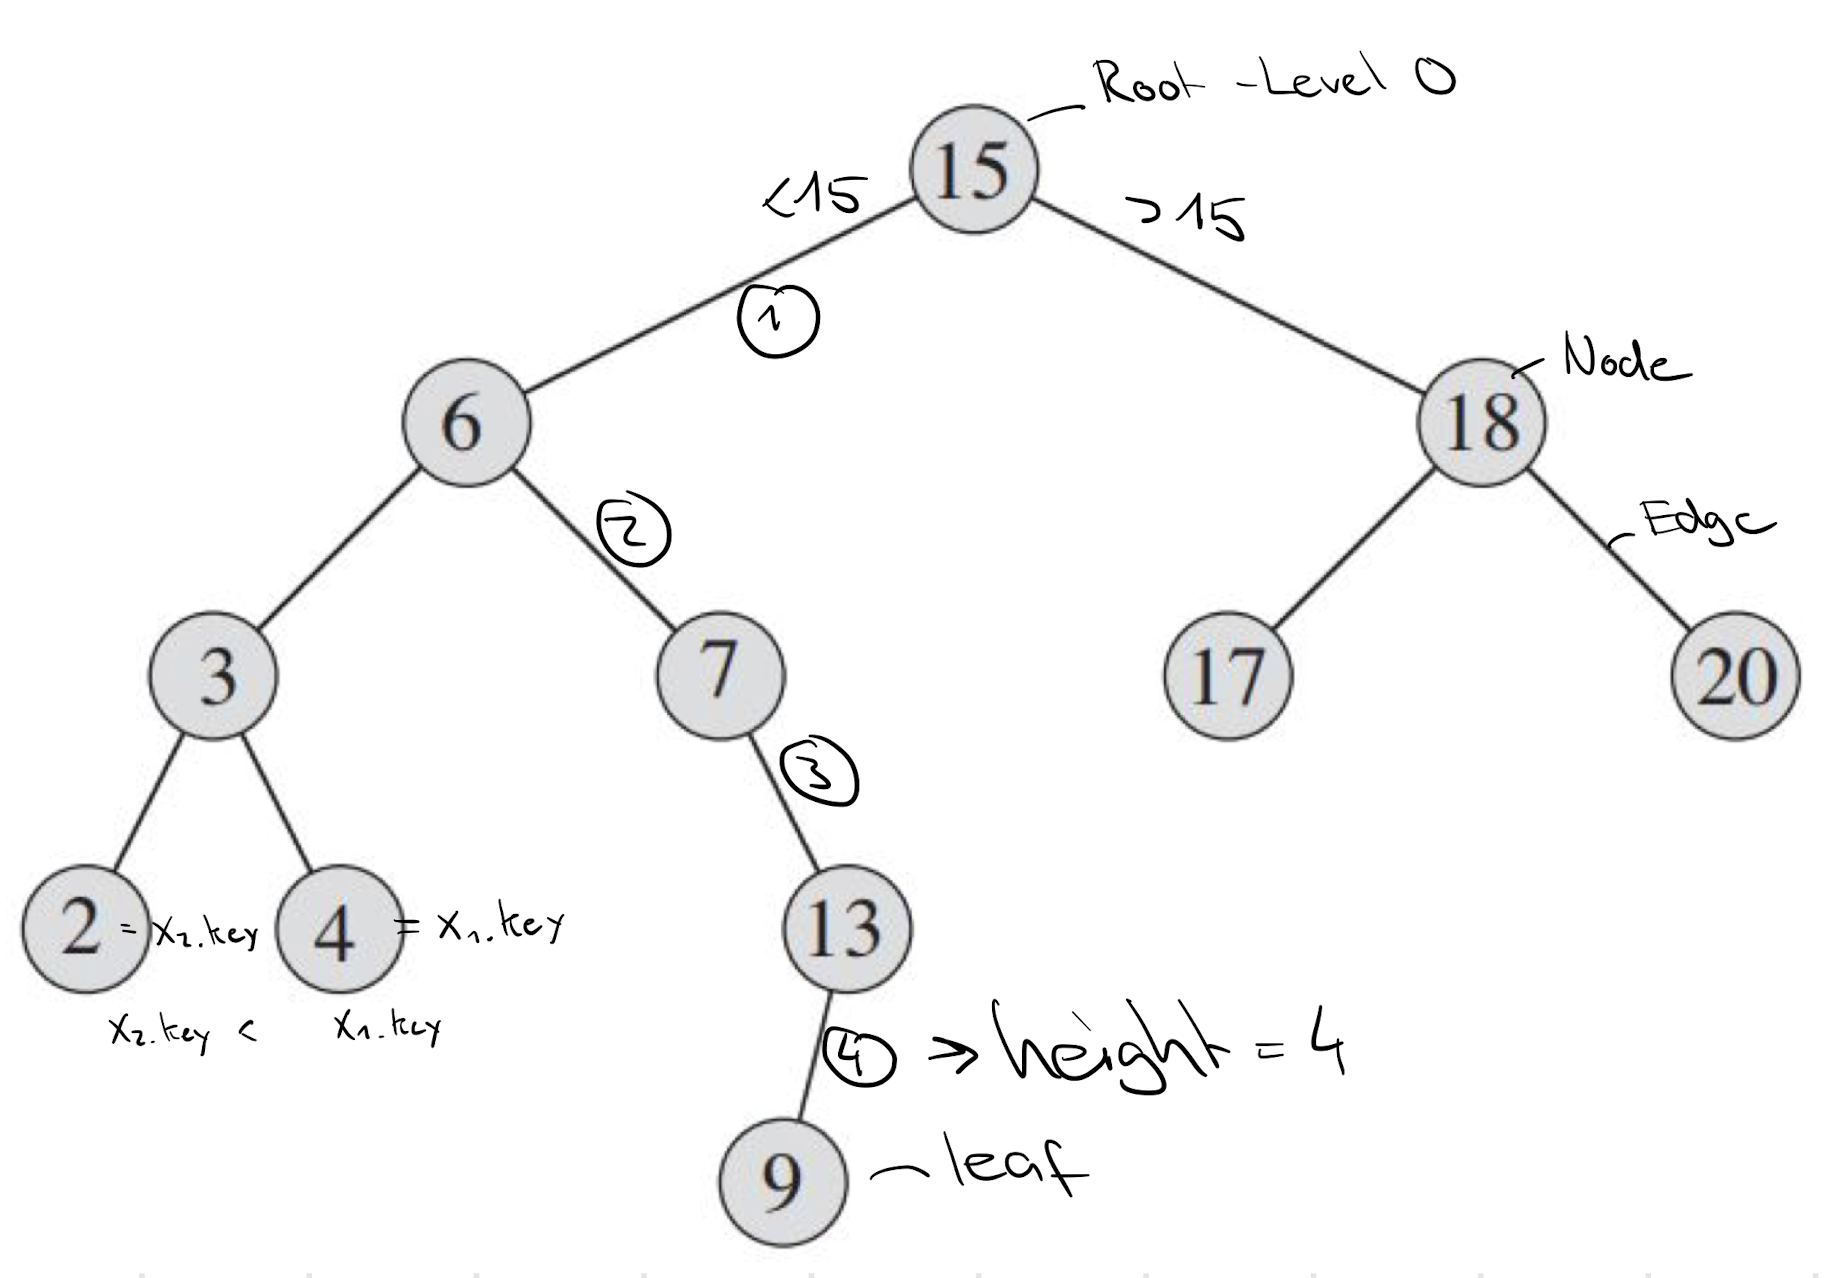 Root - Level 0
15
<15
>15
1
Node
6
18
2
Edge
3
7
17
20
3
2 = x₂.key
4 = x₁.key
13
x₂.key < x₁.key
4 => height = 4
9
leaf